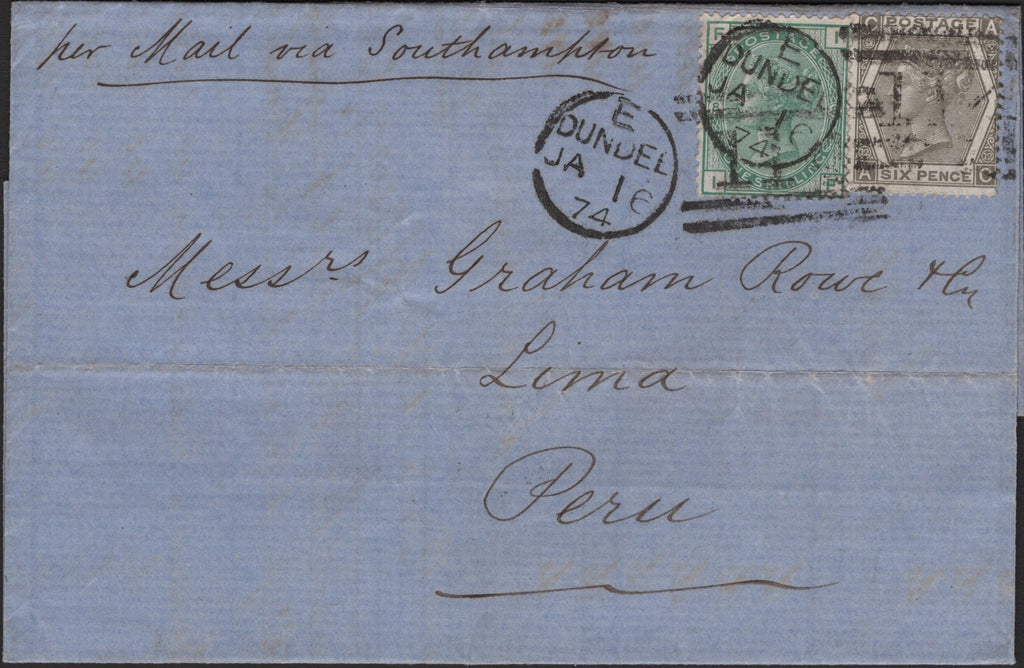 per Mail via Southampton
POSTAGE
ONE SHILLING
C POSTAGE A
A SIX PENCE C
E
DUNDEE
JA 16
74
E
DUNDEE
JA 16
74
Messrs Graham Rowe & Co
Lima
Peru